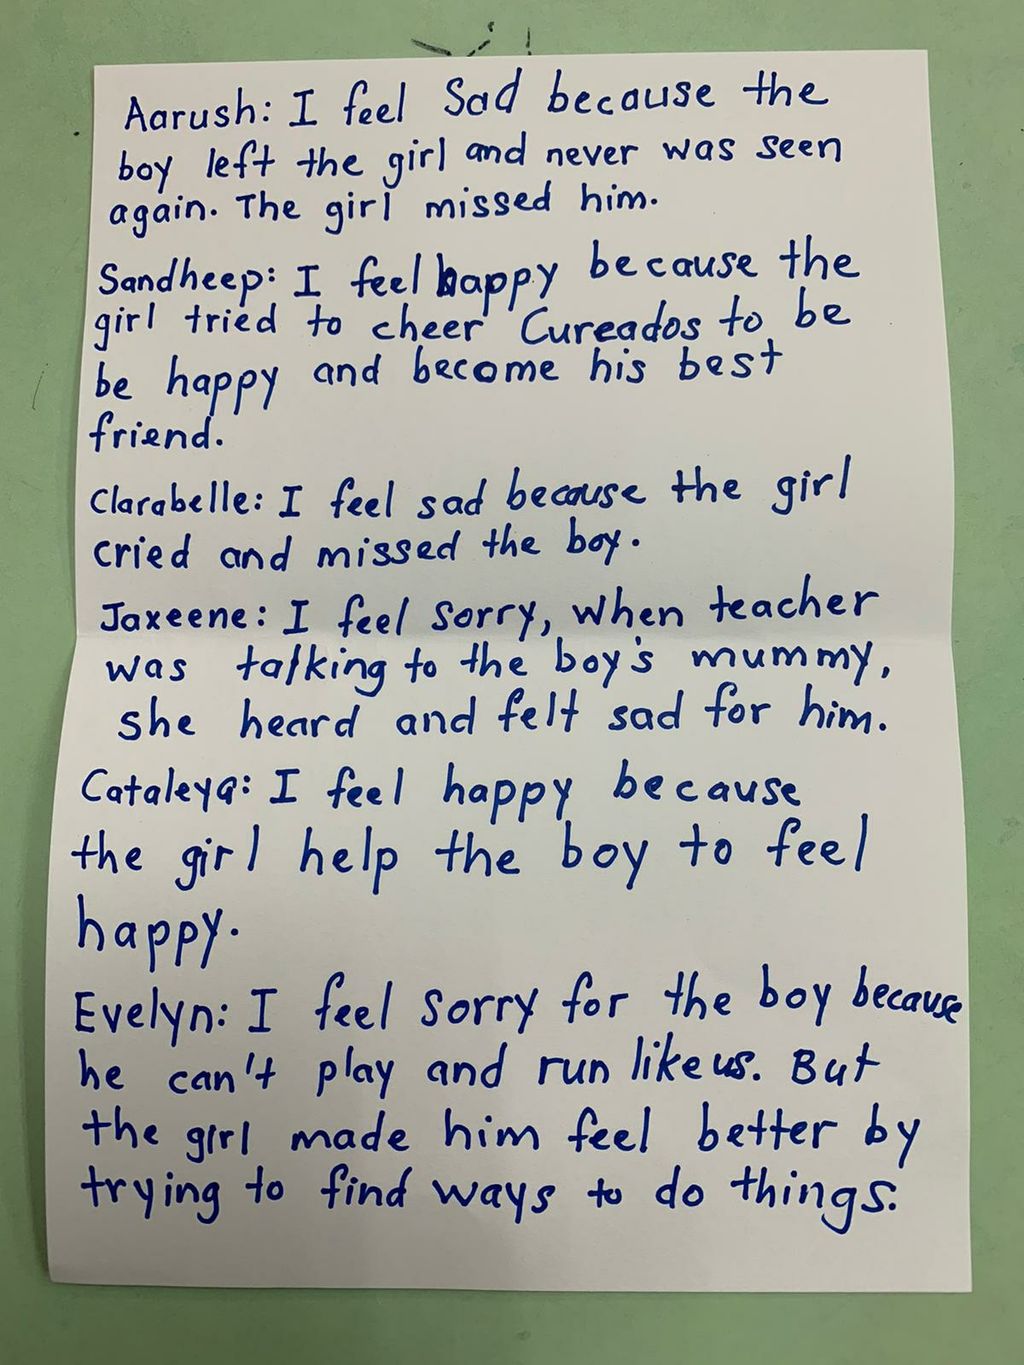 Aarush: I feel Sad because the
boy left the girl and never was seen
again. The girl missed him.
Sandheep: I feel happy because the
girl tried to cheer Cureados to be
be happy and become his best
friend.
Clarabelle: I feel sad because the girl
cried and missed the boy.
Jaxeene: I feel sorry, when teacher
was talking to the boy's mummy,
she heard and felt sad for him.
Cataleya: I feel happy because
the girl help the boy to feel
happy.
Evelyn: I feel sorry for the boy because
he can't play and run like us. But
the girl made him feel better by
trying to find ways to do things.